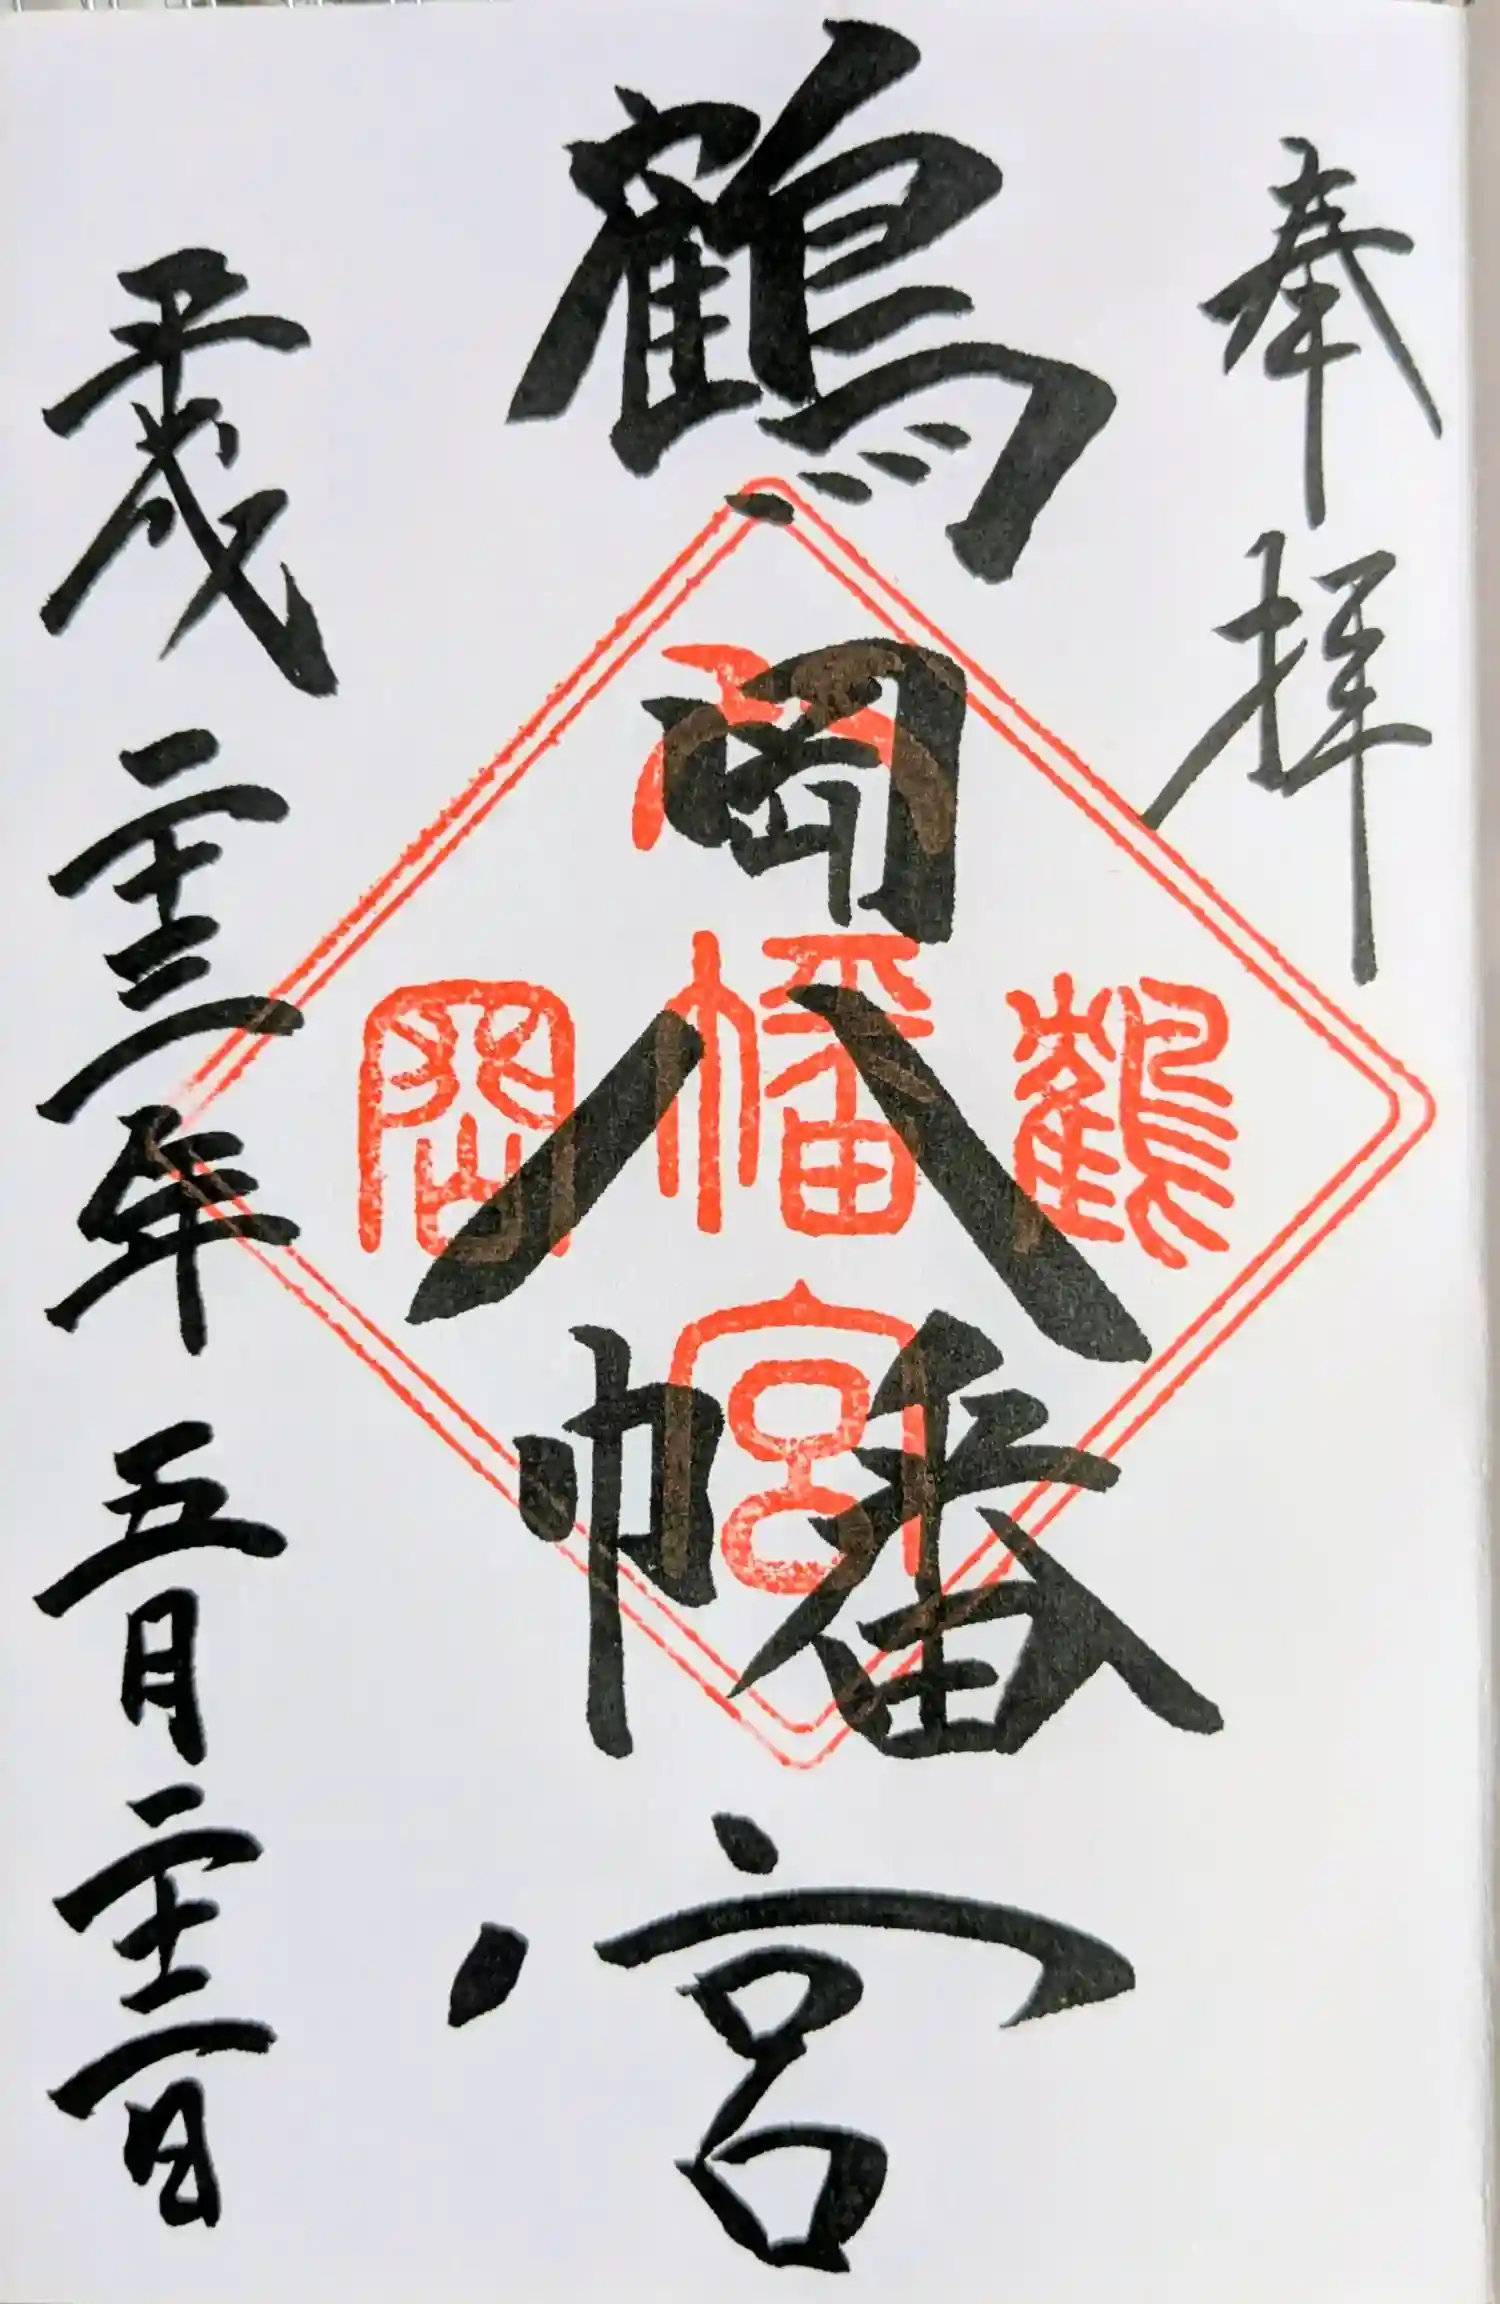 奉拝
鶴岡八幡宮
平成二十三年五月二十二日
鶴岡
八幡宮